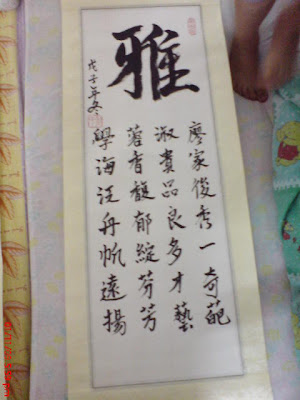 雅
廖家俊秀一奇葩
淑貴品良多才藝
蓉香馥郁綻芬芳
學海汪舟帆遠揚
戊子年冬